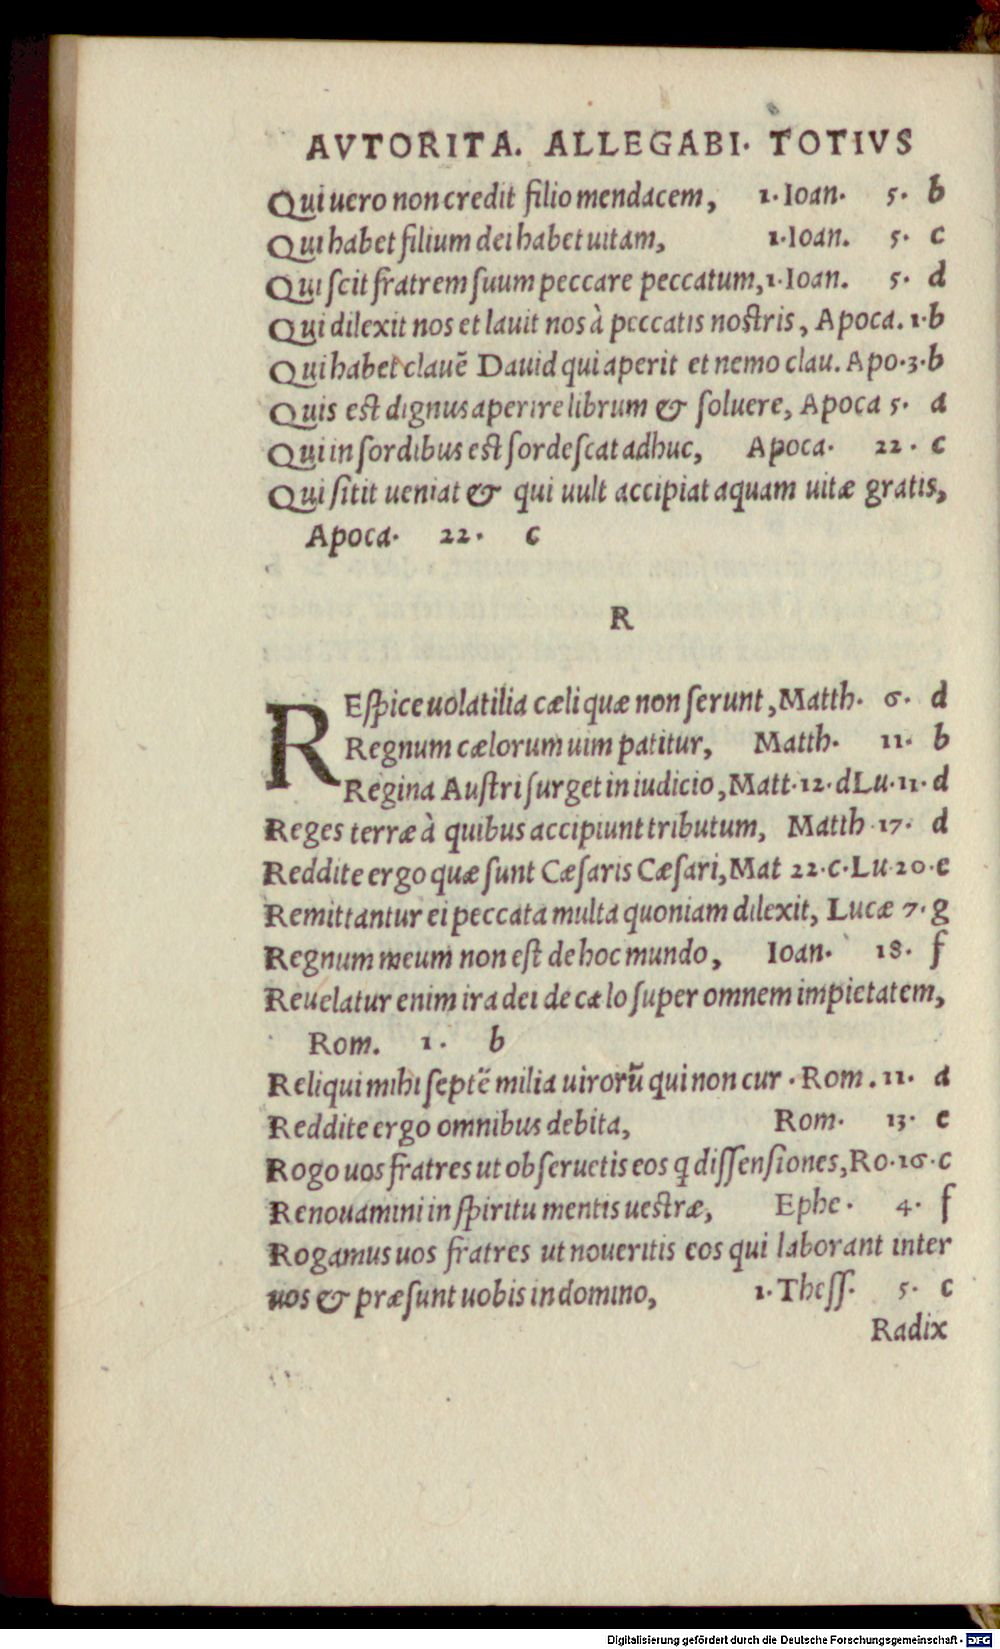 AVTORITA. ALLEGABI. TOTIVS
Qui uero non credit filio mendacem, 1. Ioan. 5. b
Qui habet filium dei habet uitam, 1. Ioan. 5. c
Qui scit fratrem suum peccare peccatum, 1. Ioan. 5. d
Qui dilexit nos et lauit nos à peccatis nostris, Apoca. 1. b
Qui habet clauē Dauid qui aperit et nemo clau. Apo. 3. b
Quis est dignus aperire librum & soluere, Apoca 5. a
Qui in sordibus est sordescat adhuc, Apoca. 22. c
Qui sitit ueniat & qui uult accipiat aquam uitæ gratis,
Apoca. 22. c
R
REspice uolatilia cæli quæ non serunt, Matth. 6. d
Regnum cælorum uim patitur, Matth. 11. b
Regina Austri surget in iudicio, Matt. 12. d Lu. 11. d
Reges terræ à quibus accipiunt tributum, Matth. 17. d
Reddite ergo quæ sunt Cæsaris Cæsari, Mat 22. c. Lu. 20. e
Remittantur ei peccata multa quoniam dilexit, Lucæ 7. g
Regnum meum non est de hoc mundo, Ioan. 18. f
Reuelatur enim ira dei de cælo super omnem impietatem,
Rom. 1. b
Reliqui mihi septē milia uirorū qui non cur. Rom. 11. a
Reddite ergo omnibus debita, Rom. 13. c
Rogo uos fratres ut obseruetis eos q̨ dissensiones, Ro. 16. c
Renouamini in spiritu mentis uestræ, Ephe. 4. f
Rogamus uos fratres ut noueritis eos qui laborant inter
uos & præsunt uobis in domino, 1. Thess. 5. c
Radix
Digitalisierung gefördert durch die Deutsche Forschungsgemeinschaft - DFG